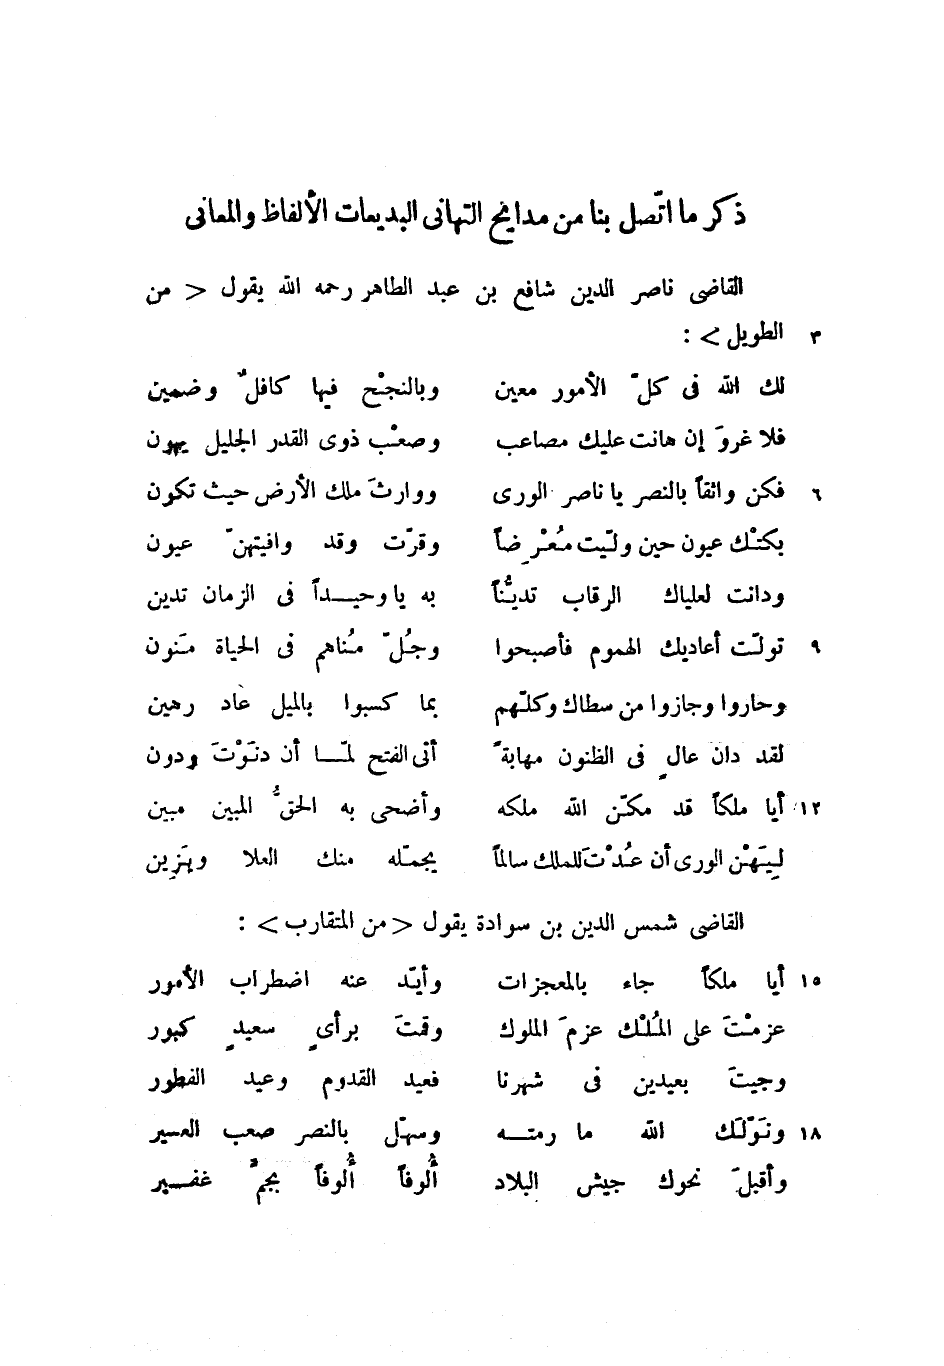 ذكر ما اتّصل بنا من مدايح التهانى البديعات الألفاظ والمعانى
القاضى ناصر الدين شافع بن عبد الطاهر رحمه الله يقول < من
٣ الطويل > :
لك الله فى كلّ الأمور معين وبالنجْح فيها كافلٌ وضمين
فلا غروَ إن هانت عليك مصاعب وصعْب ذوى القدر الجليل يهون
٦ فكن واثقاً بالنصر يا ناصر الورى ووارثَ ملك الأرض حيث تكون
بكتْك عيون حين ولّيت مُعْرِضاً وقرّت وقد وافيتهنّ عيون
ودانت لعلياك الرقاب تديُّناً به يا وحيـداً فى الزمان تدين
٩ تولّت أعاديك الهموم فأصبحوا وجُلّ مُناهم فى الحياة مَنون
وحاروا وجازوا من سطاك وكلّهم بما كسبوا بالميل عاد رهين
لقد دان عالٍ فى الظنون مهابةً أتى الفتح لمّـا أن دنَوْتَ ودون
١٢ أيا ملكاً قد مكّن الله ملكه وأضحى به الحقُّ المبين مبين
لِيَهْنِ الورى أن عُدْتَ للملك سالماً يجمّله منك العلا ويَزِين
القاضى شمس الدين بن سوادة يقول < من المتقارب > :
١٥ أيا ملكاً جاء بالمعجزات وأيّد عنه اضطراب الأمور
عزمْتَ على المُلْك عزمَ الملوك وقمتَ برأىٍ سعيدٍ كبور
وجيتَ بعيدين فى شهرنا فعيد القدوم وعيد الفطور
١٨ ونَوّلَك الله ما رمتـه وسهّل بالنصر صعب العسير
وأقبلَ نحوك جيش البلاد أُلوفاً أُلوفاً بجمٍّ غفـير